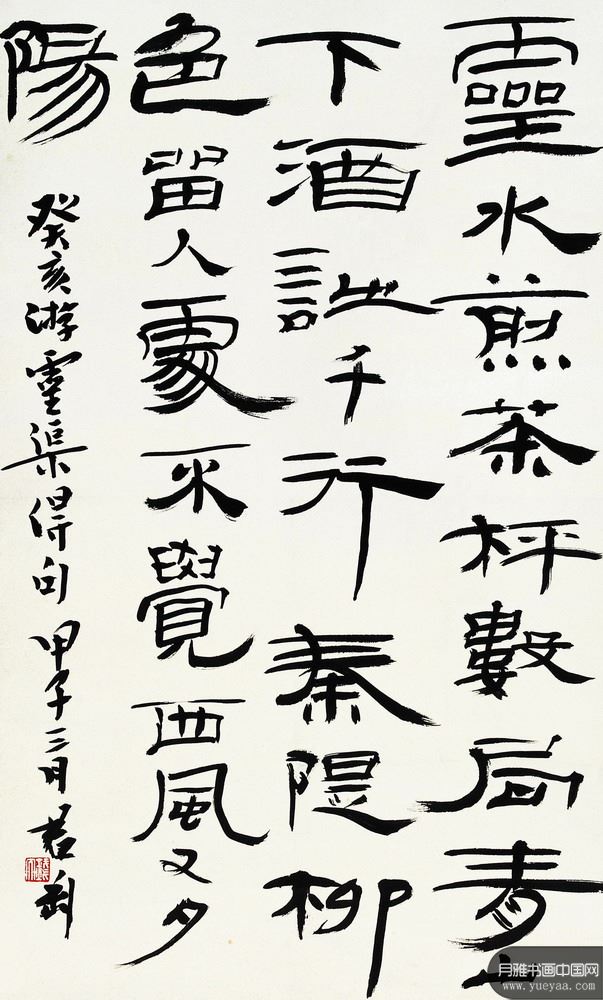 靈水煎茶枰數局青
下酒詩千行秦隄柳
色留人處不覺西風又夕
陽
癸亥游靈渠得句 甲子三月
月雅书画中国网
www.yueyaa.com